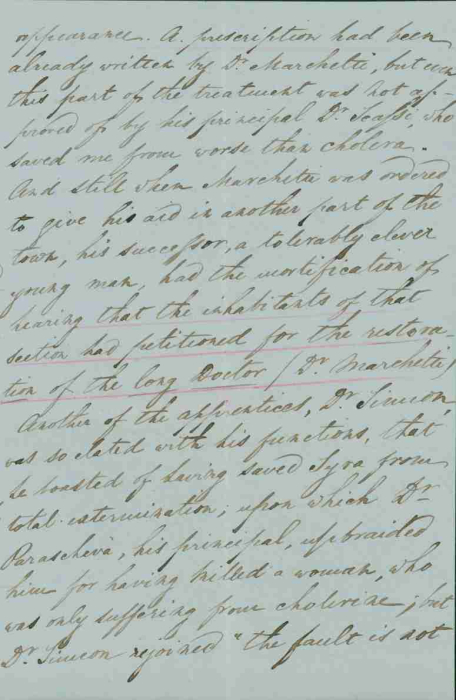 appearance. A prescription had been
already written by Dr Marchetti, but even
this part of the treatment was not ap-
proved of by his principal Dr Scassi, who
saved me from worse than cholera.
And still when Marchetti was ordered
to give his aid in another part of the
town, his successor, a tolerably clever
young man, had the mortification of
hearing that the inhabitants of that
section had petitioned for the restora-
tion of the long Doctor (Dr Marchetti)
Another of the apprentices, Dr Simeon,
was so elated with his functions, that
he boasted of having saved Syra from
total extermination; upon which Dr
Parascheva, his principal, upbraided
him for having killed a woman, who
was only suffering from cholerine; but
Dr Simeon rejoined "the fault is not